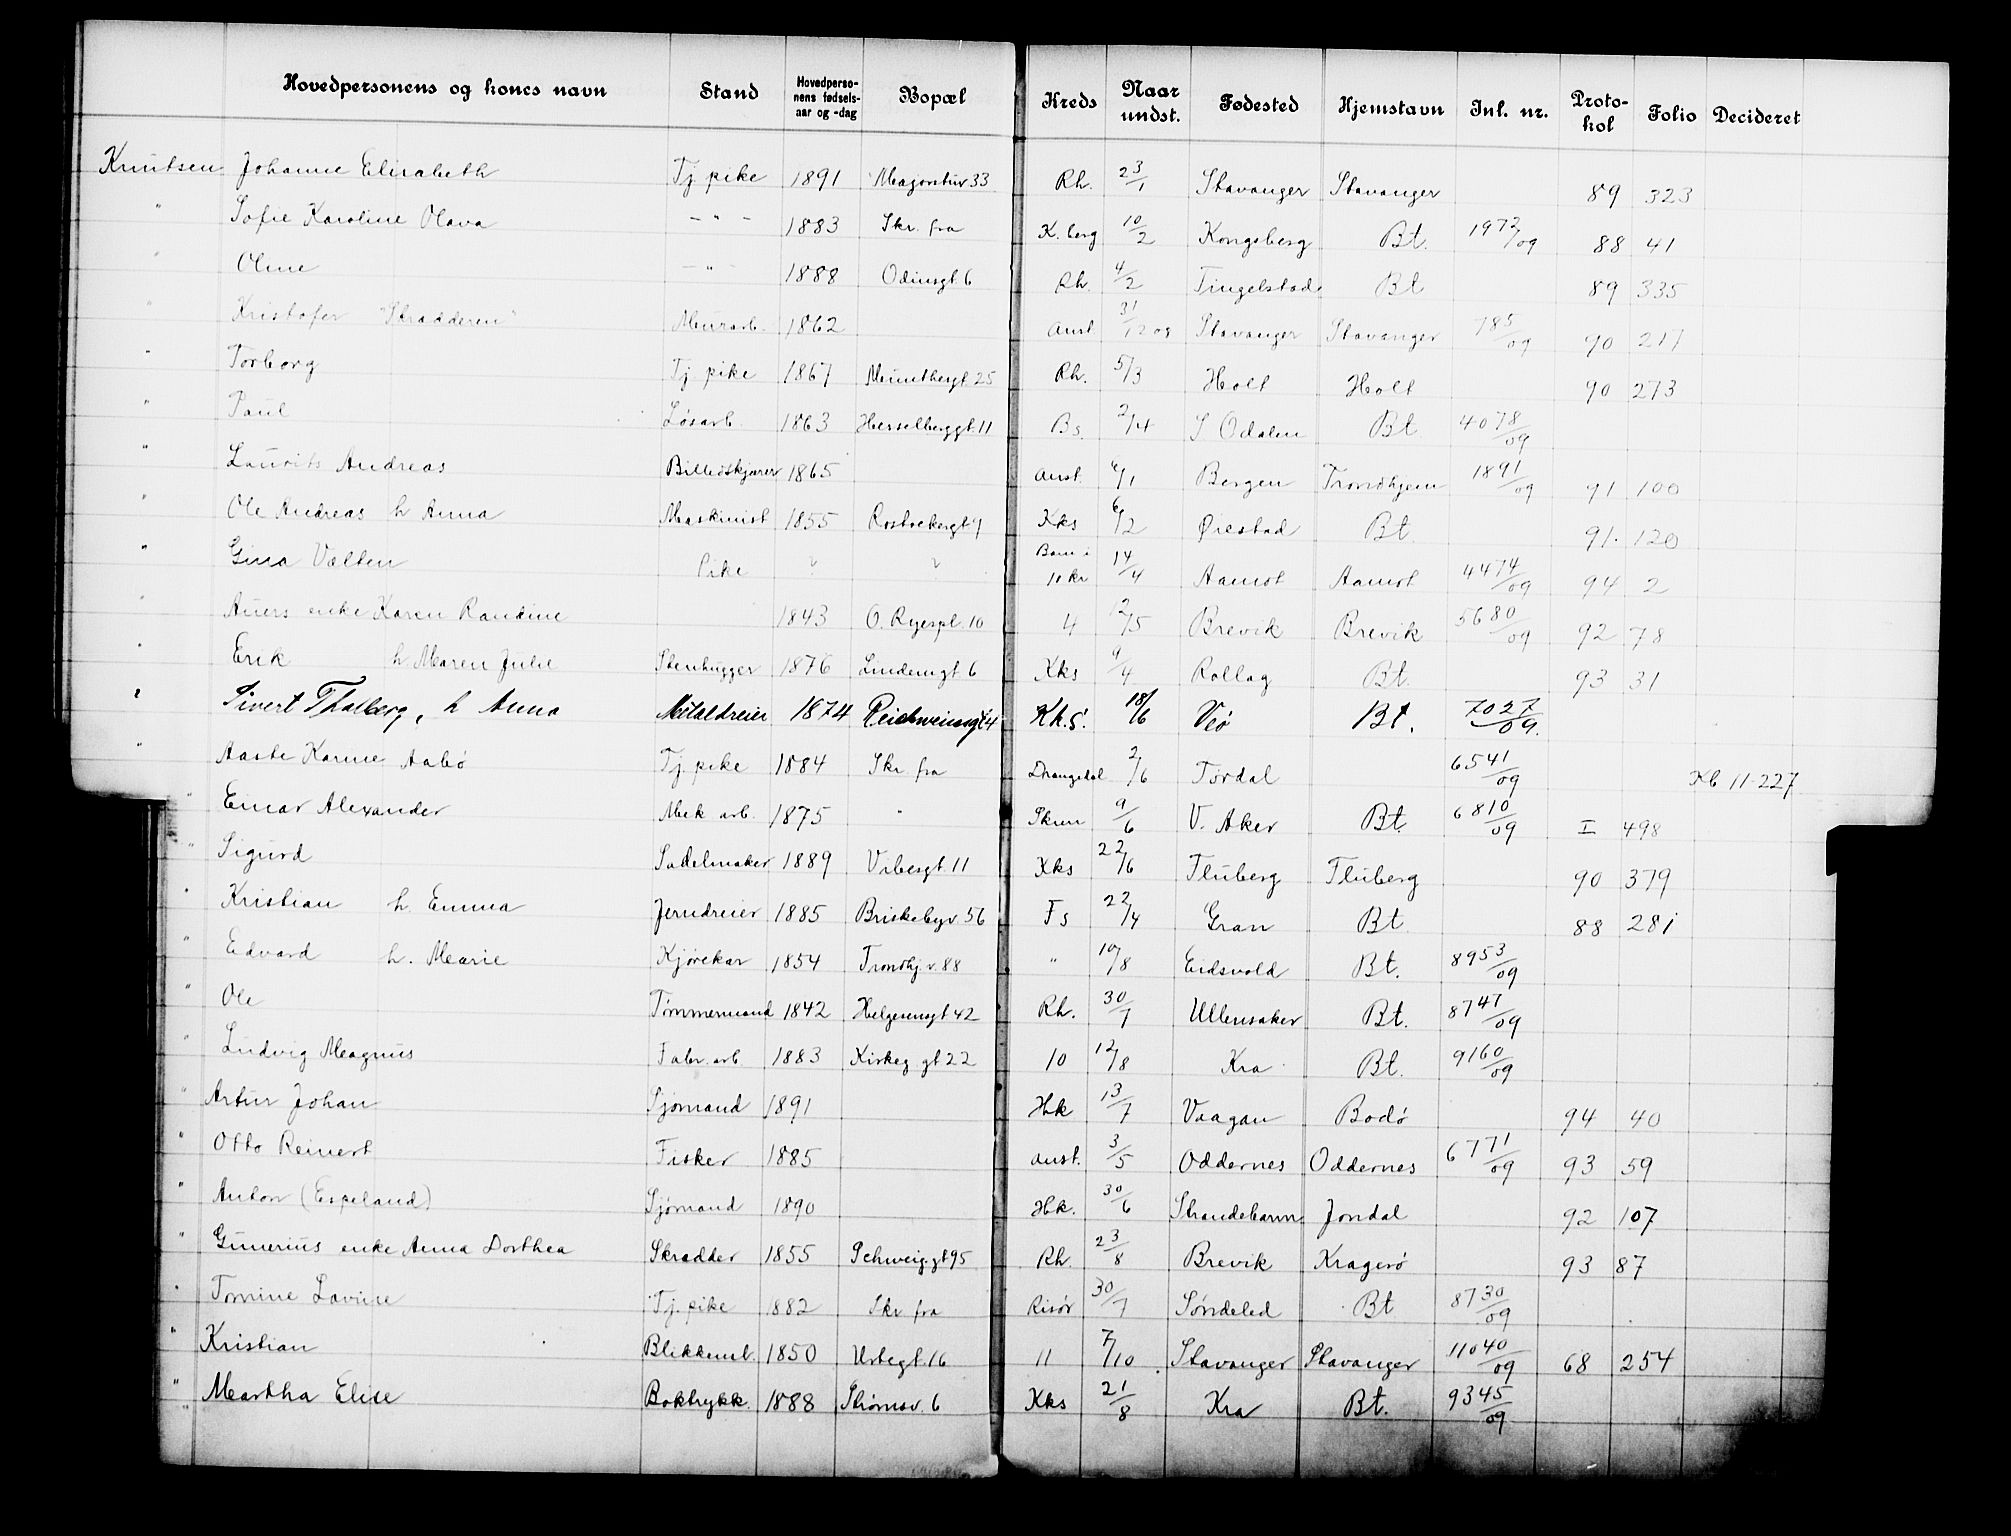 Hovedpersonens og kones navn Stand Hovedpersonens fødselsaar og -dag Bopæl Kreds Naar undst. Fødested Hjemstavn Inl. nr. Protokol Folio Decideret
Knutsen Johanne Elisabeth Tj. pike 1891 Majorstuv 33 Rh. 23/1 Stavanger Stavanger 89 323
" Sofie Karoline Olava - " - 1883 Skr. fra K.berg 10/2 Kongsberg Bt. 1972/09 88 41
" Oline - " - 1888 Odinsgt 6 Rh. 4/2 Tingelstad Bt 89 335
" Kristofer "Skrædderen" Murarb. 1862 anst 31/12 08 Stavanger Stavanger 785/09 90 217
" Torborg Tj pike 1867 Munthesgt. 25 Rh. 5/3 Holt Holt 90 273
" Paul Løsarb. 1863 Herselberggt. 11 Bs. 2/4 S Odalen Bt 4078/09
" Laurits Andreas Billedskjærer 1865 anst. 6/1 Bergen Trondhjem 1891/09 91 100
" Ole Andreas h Anna Maskinist 1855 Rostockergt 9 Kks 6/2 Øiestad Bt. 91. 120
" Gina Velten Pike " " Barn i 10 kr 14/4 Aamot Aamot 4474/09 94 2
" Auers enke Karen Randine 1843 O. Ryespl. 10 4 12/5 Brevik Brevik 5680/09 92 78
" Erik h Maren Julie Stenhugger 1876 Lindemgt 6 Kks 4/4 Rollag Bt. 93 31
" Sivert Thalberg, h Anna Metaldreier 1874 Reichweinsgt 4 Kh.S. 18/6 Veø Bt. 7027/09.
" Aaste Karine Aabø Tj. pike 1884 Skr. fra Drangedal 2/6 Tørdal 6541/09 Kb 11-227
" Einar Alexander Mek arb. 1875 " Skien 9/6 V. Aker Bt. 6810/09 I 498
" Sigurd Sadelmaker 1889 Vibesgt. 11 Kks 22/6 Fluberg Fluberg 90 379
" Kristian h. Emma Jerndreier 1885 Briskebyv. 56 Fs 22/4 Gran Bt. 88 281
" Edvard h. Marie Kjørekar 1854 Trondhj. v. 88 " 10/8 Eidsvold Bt. 8953/09
" Ole Tømmermand 1842 Helgesensgt 42 Rh. 30/7 Ullensaker Bt. 8747/09
" Ludvig Magnus Fabr. arb 1883 Kirkeg gt 22 10 12/8 Kra Bt. 9160/09
" Artur Johan Sjømand 1891 Hk 13/7 Vaagan Bodø 94 40
" Otto Reinert Fisker 1885 anst. 3/5 Oddernes Oddernes 6771/09 93 59
" Anton (Espeland) Sjømand 1890 Hk. 30/6 Strandebarm Jondal 92 107
" Gunerius enke Anna Dorthea Skrædder 1855 Schweig. gt 95 Rh. 23/8 Brevik Kragerø 93 87
" Tomine Lavine Tj. pike 1882 Skr fra Risør 30/7 Søndeled Bt 8730/09
" Kristian Blikkensl. 1850 Urtegt. 16 11 7/10 Stavanger Stavanger 11040/09 68 254
" Martha Elise Boktrykk. 1888 Strømsv. 6 Kks 21/8 Kra Bt. 9345/09